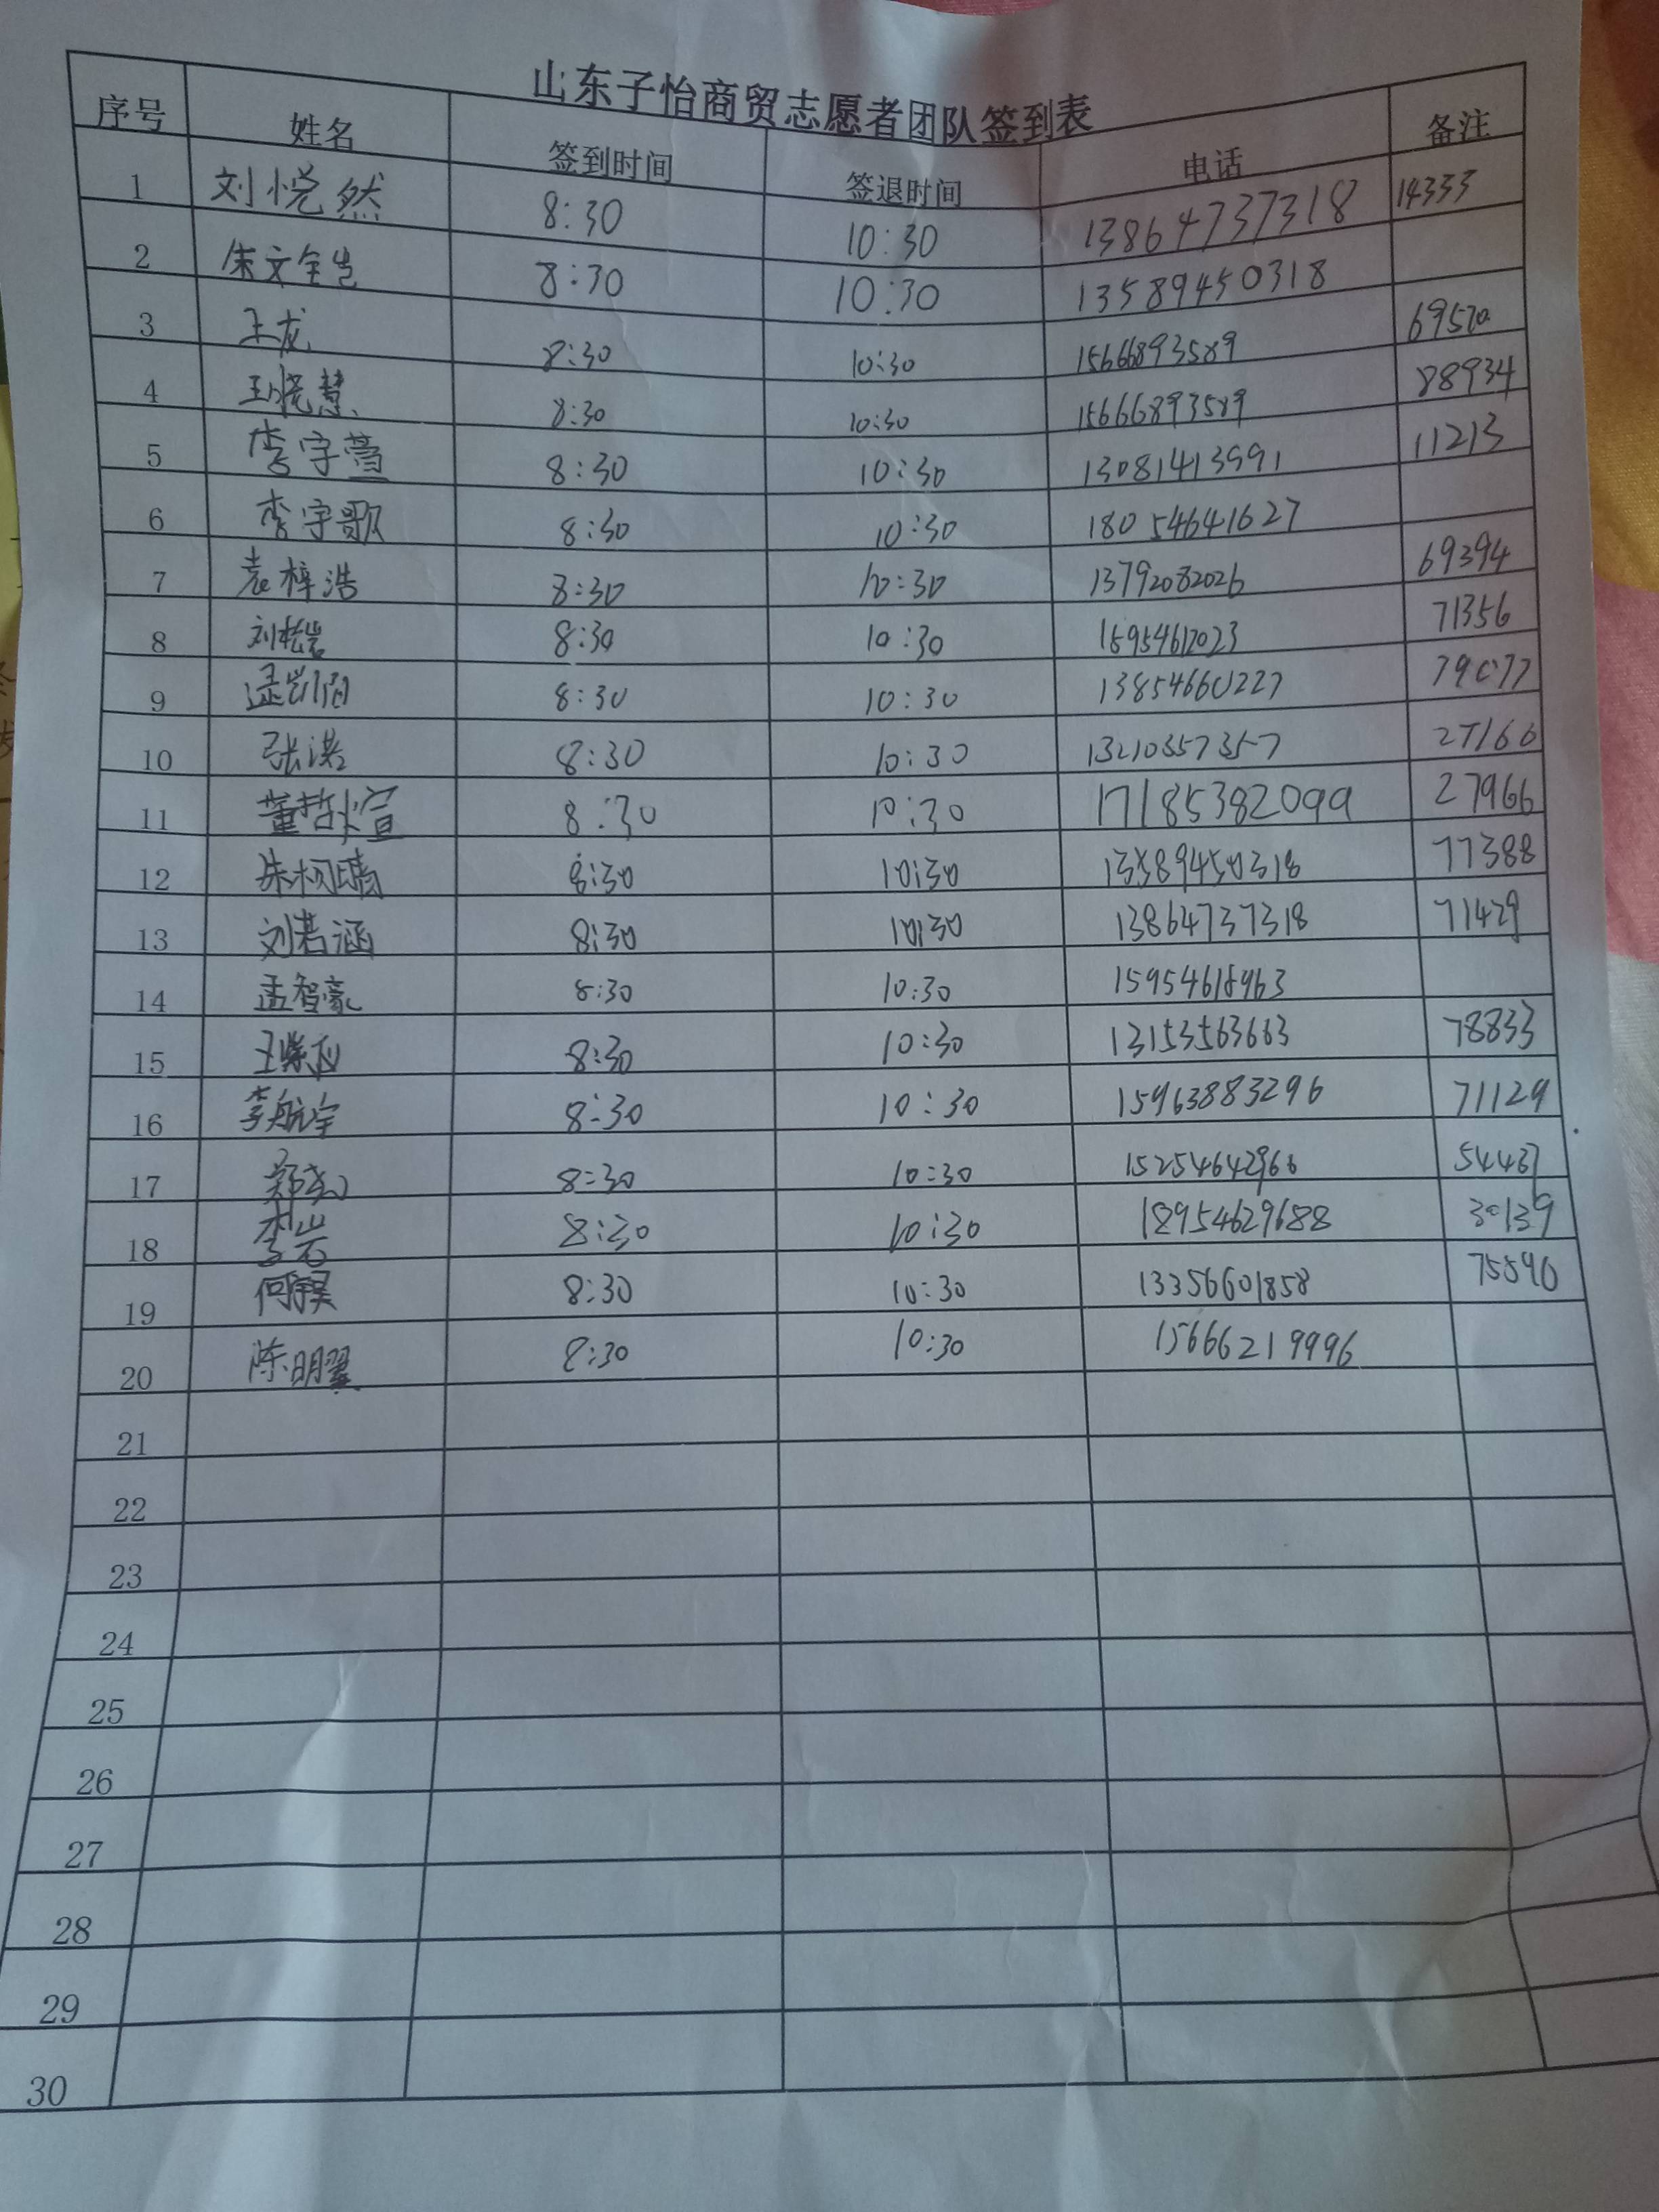 山东子怡商贸志愿者团队签到表
序号 姓名 签到时间 签退时间 电话 备注
1 刘悦然 8:30 10:30 13864737318 14333
2 朱文 8:30 10:30 13589450318
3 王龙 8:30 10:30 15666893589 69570
4 王晓慧 8:30 10:30 15666893589 88934
5 李宇萱 8:30 10:30 13081413991 11213
6 李宇歌 8:30 10:30 18054641627
7 袁梓浩 8:30 10:30 13792082026 69394
8 刘松岩 8:30 10:30 15954612023 71356
9 孟凯 8:30 10:30 13854660227 79077
10 张洪 8:30 10:30 13210357357 27166
11 董哲煊 8:30 10:30 17185382099 27966
12 朱柯晴 8:30 10:30 13589450318 77388
13 刘若涵 8:30 10:30 13864737318 71429
14 孟智豪 8:30 10:30 15954618963
15 王 8:30 10:30 13153563663 78833
16 李航宇 8:30 10:30 15963883296 71129
17 郑 8:30 10:30 15254642966 54467
18 李岩 8:30 10:30 18954629688 30139
19 何昊 8:30 10:30 13356601858 75590
20 陈明翼 8:30 10:30 15666219996
21
22
23
24
25
26
27
28
29
30